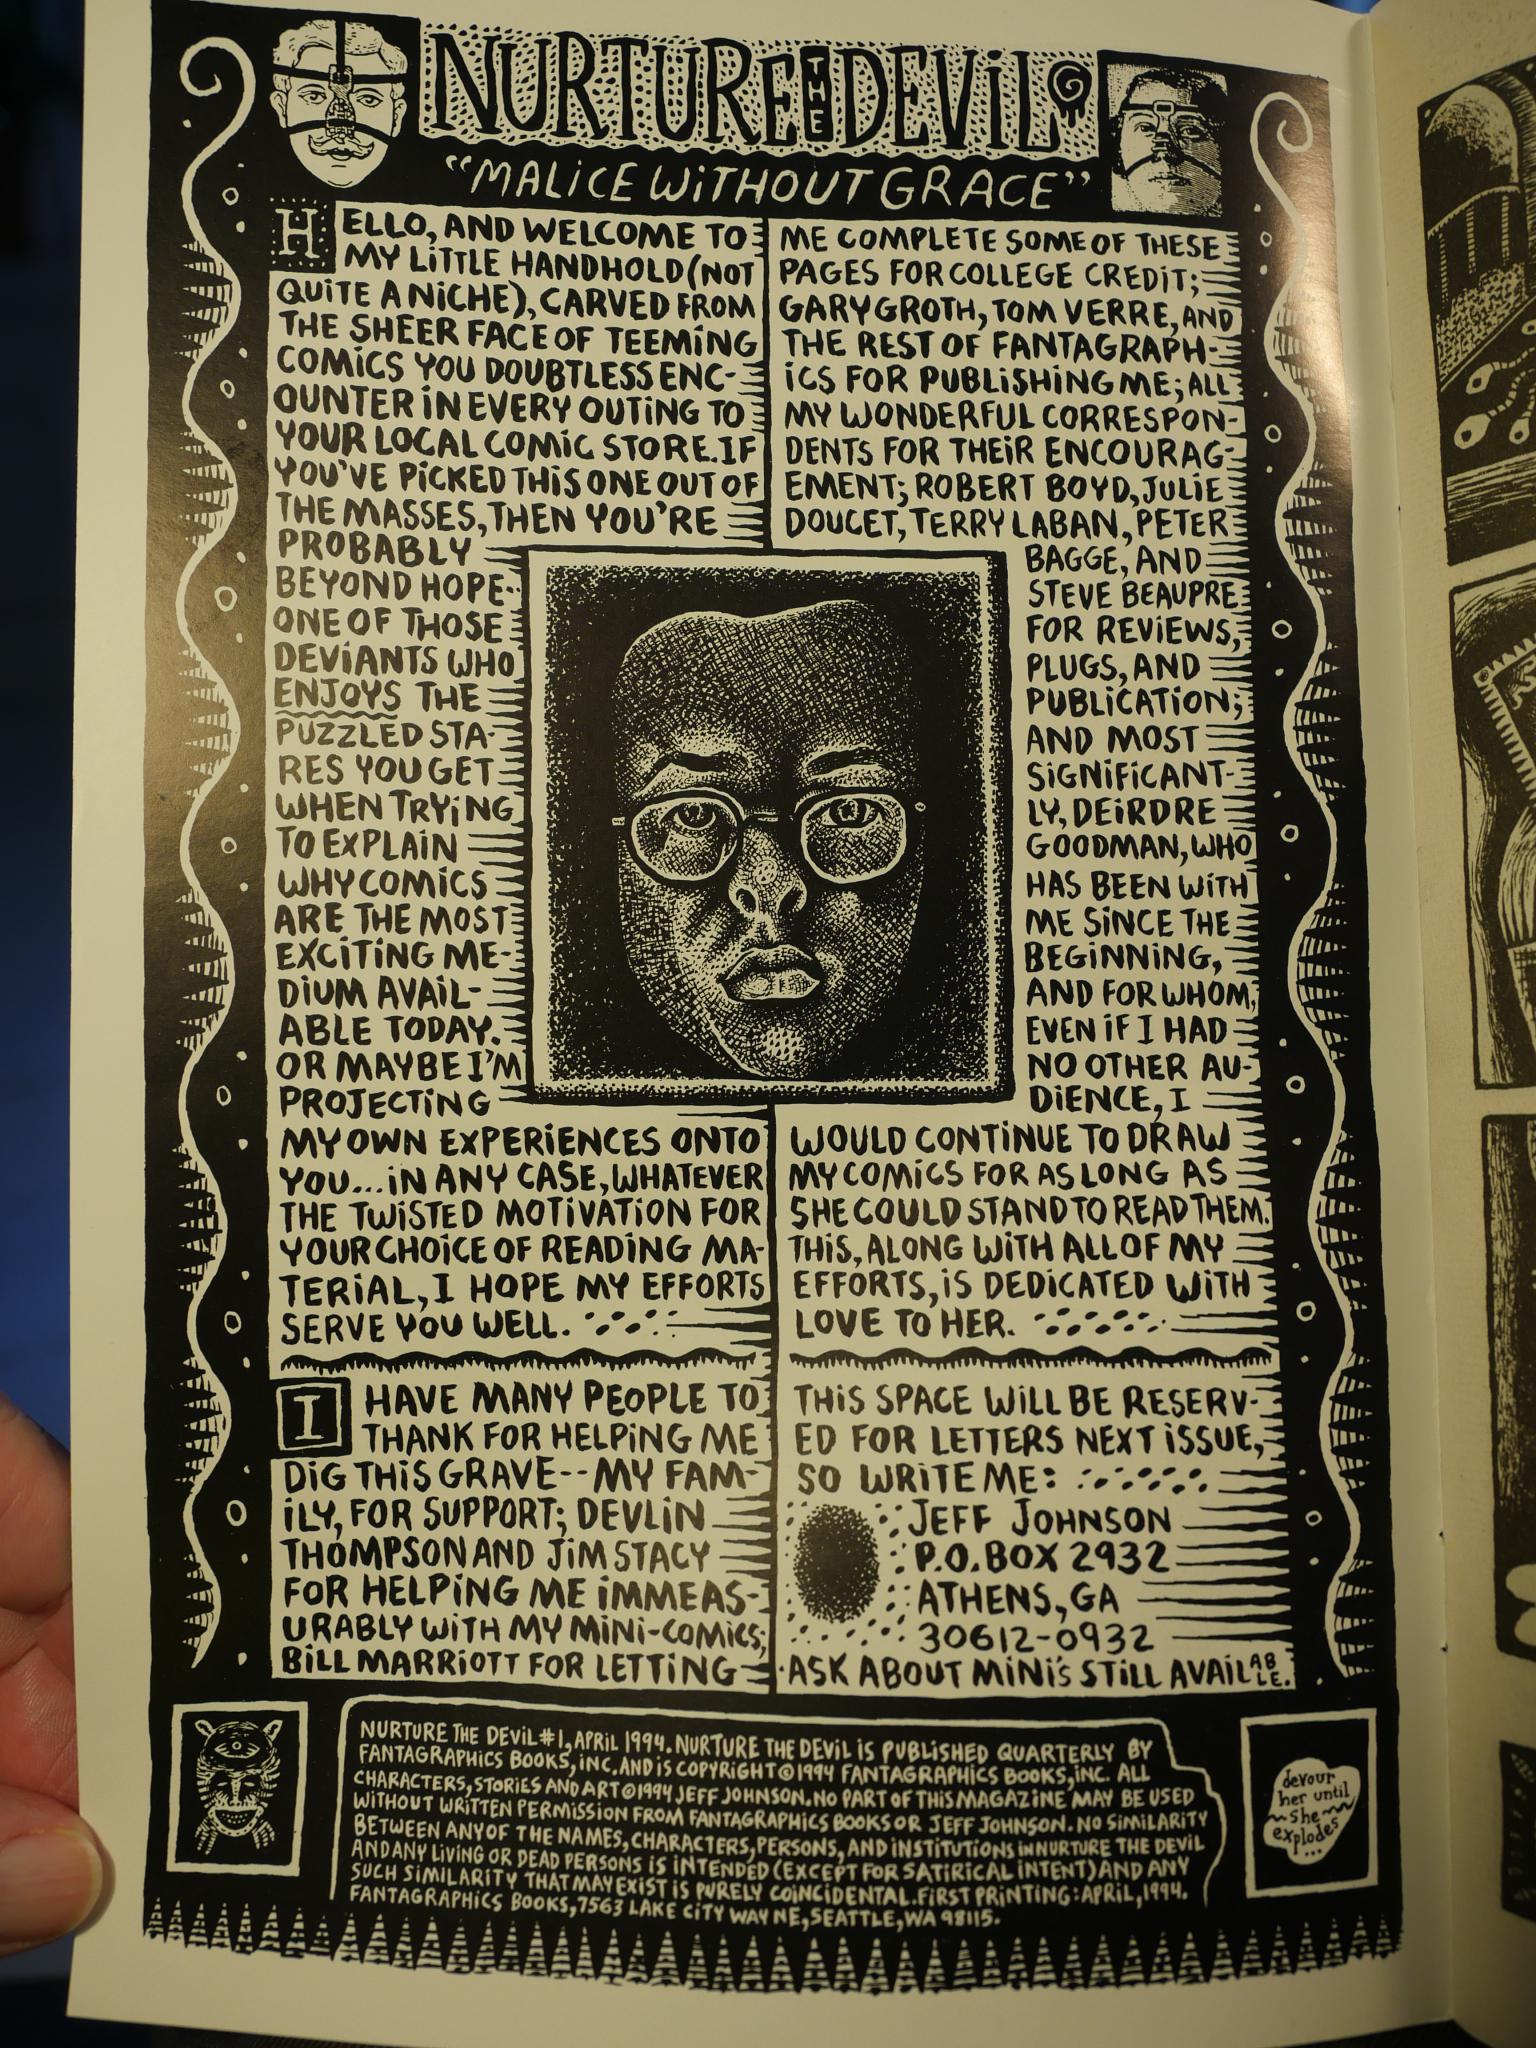 NURTURE THE DEVIL
"MALICE WITHOUT GRACE"
HELLO, AND WELCOME TO
MY LITTLE HANDHOLD (NOT
QUITE A NICHE), CARVED FROM
THE SHEER FACE OF TEEMING
COMICS YOU DOUBTLESS ENC-
OUNTER IN EVERY OUTING TO
YOUR LOCAL COMIC STORE. IF
YOU'VE PICKED THIS ONE OUT OF
THE MASSES, THEN YOU'RE
PROBABLY
BEYOND HOPE:
ONE OF THOSE
DEVIANTS WHO
ENJOYS THE
PUZZLED STA-
RES YOU GET
WHEN TRYING
TO EXPLAIN
WHY COMICS
ARE THE MOST
EXCITING ME-
DIUM AVAIL-
ABLE TODAY.
OR MAYBE I'M
PROJECTING
MY OWN EXPERIENCES ONTO
YOU... IN ANY CASE, WHATEVER
THE TWISTED MOTIVATION FOR
YOUR CHOICE OF READING MA-
TERIAL, I HOPE MY EFFORTS
SERVE YOU WELL.
I HAVE MANY PEOPLE TO
THANK FOR HELPING ME
DIG THIS GRAVE-- MY FAM-
ILY, FOR SUPPORT; DEVLIN
THOMPSON AND JIM STACY
FOR HELPING ME IMMEAS-
URABLY WITH MY MINI-COMICS;
BILL MARRIOTT FOR LETTING
ME COMPLETE SOME OF THESE
PAGES FOR COLLEGE CREDIT;
GARY GROTH, TOM VERRE, AND
THE REST OF FANTAGRAPH-
ICS FOR PUBLISHING ME; ALL
MY WONDERFUL CORRESPON-
DENTS FOR THEIR ENCOURAG-
EMENT; ROBERT BOYD, JULIE
DOUCET, TERRY LABAN, PETER
BAGGE, AND
STEVE BEAUPRE
FOR REVIEWS,
PLUGS, AND
PUBLICATION;
AND MOST
SIGNIFICANT-
LY, DEIRDRE
GOODMAN, WHO
HAS BEEN WITH
ME SINCE THE
BEGINNING,
AND FOR WHOM,
EVEN IF I HAD
NO OTHER AU-
DIENCE, I
WOULD CONTINUE TO DRAW
MY COMICS FOR AS LONG AS
SHE COULD STAND TO READ THEM.
THIS, ALONG WITH ALL OF MY
EFFORTS, IS DEDICATED WITH
LOVE TO HER.
THIS SPACE WILL BE RESERV-
ED FOR LETTERS NEXT ISSUE,
SO WRITE ME:
JEFF JOHNSON
P.O. BOX 2932
ATHENS, GA
30612-0932
ASK ABOUT MINI'S STILL AVAILABLE.
NURTURE THE DEVIL #1, APRIL 1994. NURTURE THE DEVIL IS PUBLISHED QUARTERLY BY
FANTAGRAPHICS BOOKS, INC. AND IS COPYRIGHT © 1994 FANTAGRAPHICS BOOKS, INC. ALL
CHARACTERS, STORIES AND ART © 1994 JEFF JOHNSON. NO PART OF THIS MAGAZINE MAY BE USED
WITHOUT WRITTEN PERMISSION FROM FANTAGRAPHICS BOOKS OR JEFF JOHNSON. NO SIMILARITY
BETWEEN ANY OF THE NAMES, CHARACTERS, PERSONS, AND INSTITUTIONS IN NURTURE THE DEVIL
AND ANY LIVING OR DEAD PERSONS IS INTENDED (EXCEPT FOR SATIRICAL INTENT) AND ANY
SUCH SIMILARITY THAT MAY EXIST IS PURELY COINCIDENTAL. FIRST PRINTING: APRIL, 1994.
FANTAGRAPHICS BOOKS, 7563 LAKE CITY WAY NE, SEATTLE, WA 98115.
devour
her until
she
explodes
...